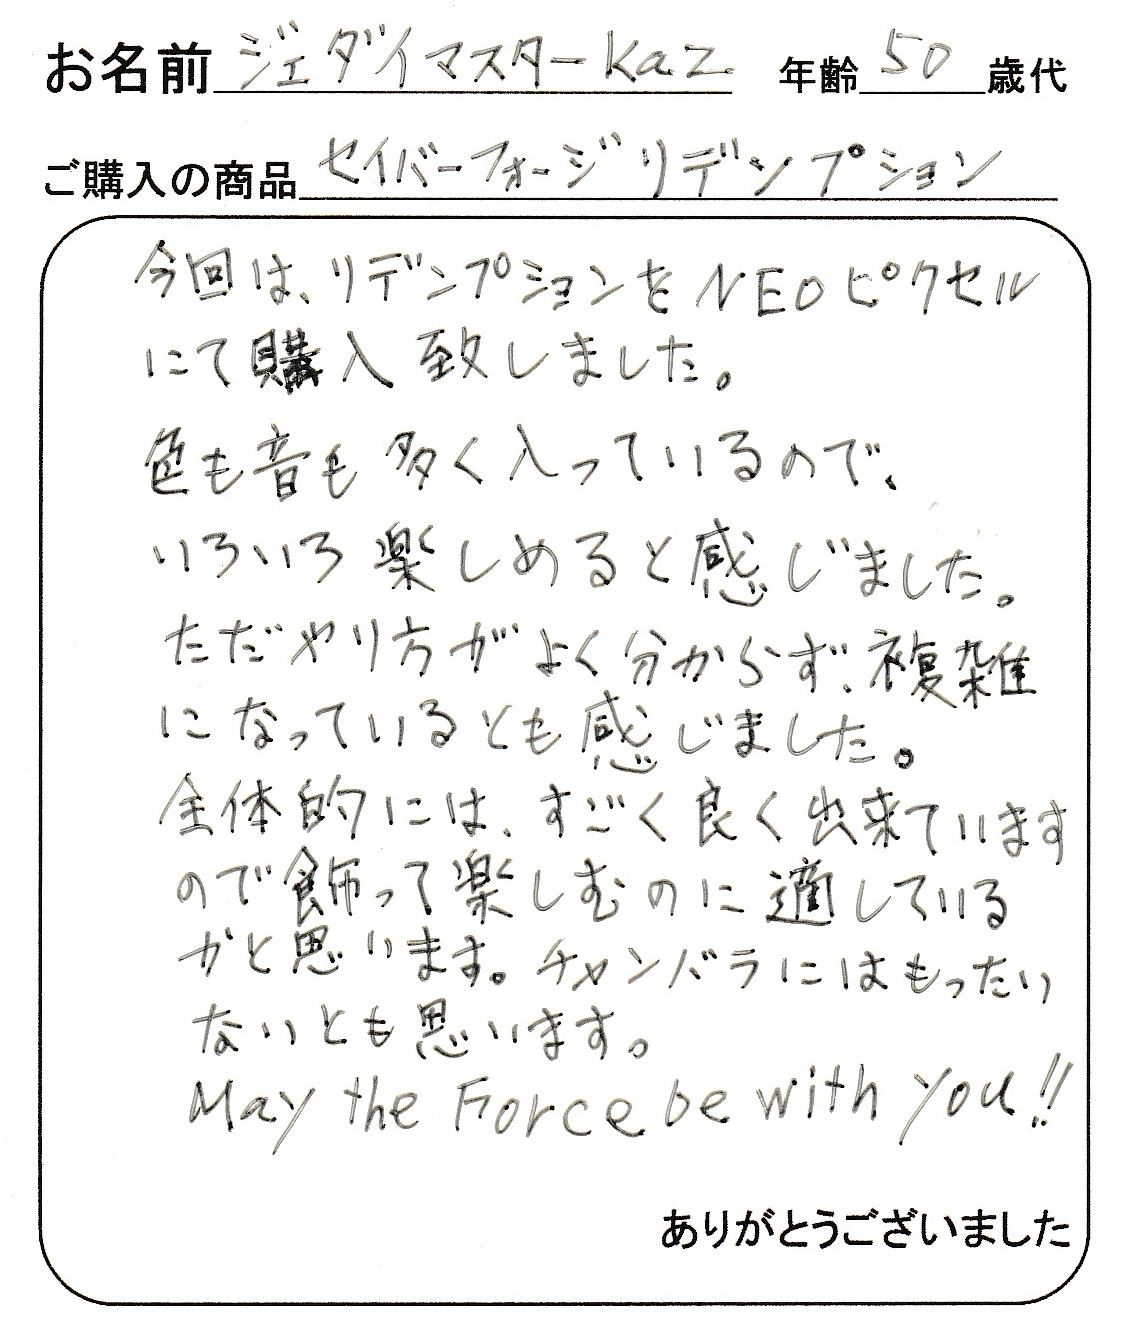 お名前 ジェダイマスターkaz 年齢 50 歳代
ご購入の商品 セイバーフォージ リデンプション
今回は、リデンプションをNEOピクセル
にて購入致しました。
色も音も多く入っているので、
いろいろ楽しめると感じました。
ただやり方がよく分からず、複雑
になっているとも感じました。
全体的には、すごく良く出来ています
ので飾って楽しむのに適している
かと思います。チャンバラにはもったい
ないとも思います。
May the Force be with you!!
ありがとうございました